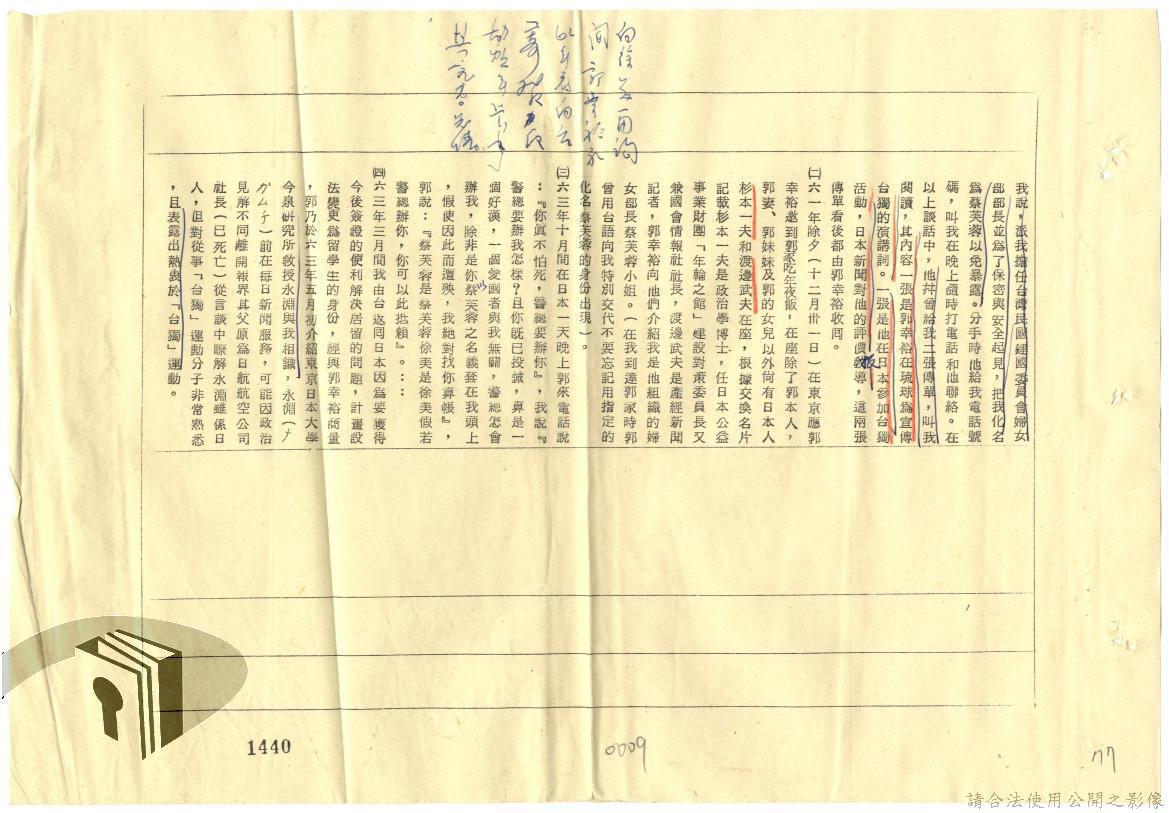 我說，派我擔任台灣民國建國委員會婦女
部部長並為了保密與安全起見，把我化名
為蔡芙蓉以免暴露。分手時他給我電話號
碼，叫我在晚上隨時打電話和他聯絡。在
以上談話中，他并曾給我二張傳單，叫我
閱讀，其內容一張是郭幸裕在琉球為宣傳
台獨的演講詞。一張是他在日本參加台獨
活動，日本新聞對他的評價報導，這兩張
傳單看後都由郭幸裕收囘。
㈡六一年除夕（十二月卅一日）在東京應郭
幸裕邀到郭家吃年夜飯，在座除了郭本人，
郭妻、郭妹妹及郭的女兒以外尙有日本人
杉本一夫和渡邊武夫在座，根據交換名片
記載杉本一夫是政治學博士，任日本公益
事業財團「年輪之館」建設對策委員長又
兼國會情報社社長，渡邊武夫是產經新聞
記者，郭幸裕向他們介紹我是他組織的婦
女部長蔡芙蓉小姐。（在我到達郭家時郭
曾用台語向我特別交代不要忘記用指定的
化名蔡芙蓉的身份出現）。
㈢六三年十月間在日本一天晚上郭來電話說
：『你眞不怕死，警總要辦你』，我說『
警總要辦我怎樣？且你旣已投誠，算是一
個好漢，一個愛國者與我無關，警總怎會
辦我，除非是你以蔡芙蓉之名義簽在我頭上
，假使因此而遭殃，我絕對找你算帳』，
郭說：『蔡芙蓉是蔡芙蓉徐美是徐美假若
警總辦你，你可以此抵賴』。：：
㈣六三年三月間我由台返囘日本因為要獲得
今後簽證的便利解決居留的問題，計畫設
法變更為留學生的身份，經與郭幸裕商量
，郭乃於六三年五月初介紹東京日本大學
今泉研究所敎授永淵與我相識，永淵（ナ
ガムチ）前在每日新聞服務，可能因政治
見解不同離開報界其父原為日航航空公司
社長（已死亡）從言談中瞭解永淵雖係日
人，但對從事「台獨」運動分子非常熟悉
，且表露出熱衷於「台獨」運動。
1440
0009
77
請合法使用公開之影像